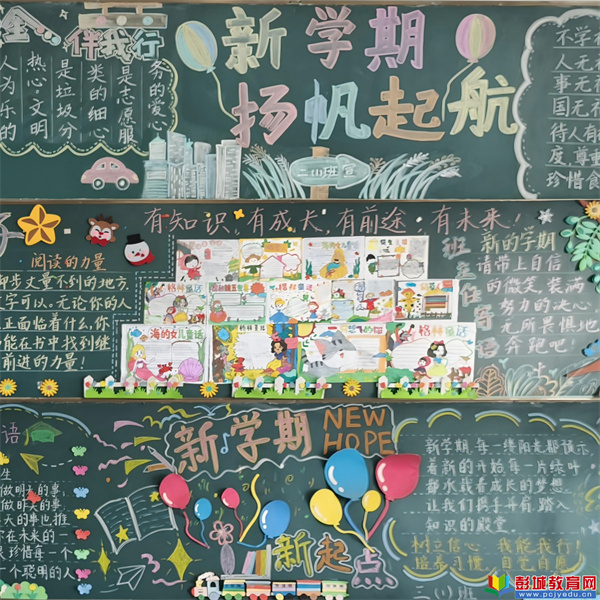 全
伴我行
务的爱心
是志愿服
类的细心
是垃圾分
热心文明
人为乐的
新学期
扬帆起航
二(1)班宣
不学
人无礼
事无礼
国无礼
待人有
度,尊重
珍惜食
有知识,有成长,有前途,有未来!
子
阅读的力量
脚步丈量不到的地方
文字可以。无论你的人
正面临着什么,你
能在书中找到继
前进的力量!
格林童话
海的女儿童话
格林童话
班主任寄语
新的学期
请带上自信
的微笑,装满
努力的决心
无所畏惧地
奔跑吧!
语
生
做明天的事,
做昨天的事
天的事也推
在未来的一
珍惜每一个
一个聪明的人
新学期
NEW
HOPE
新起点
新学期,每一缕阳光都预示
着新的开始,每一片绿叶
都承载着成长的梦想
让我们携手并肩,踏入
知识的殿堂
树立信心 我能我行!
培养习惯 自觉自愿
二(1)班
彭城教育网
www.pcjyedu.cn